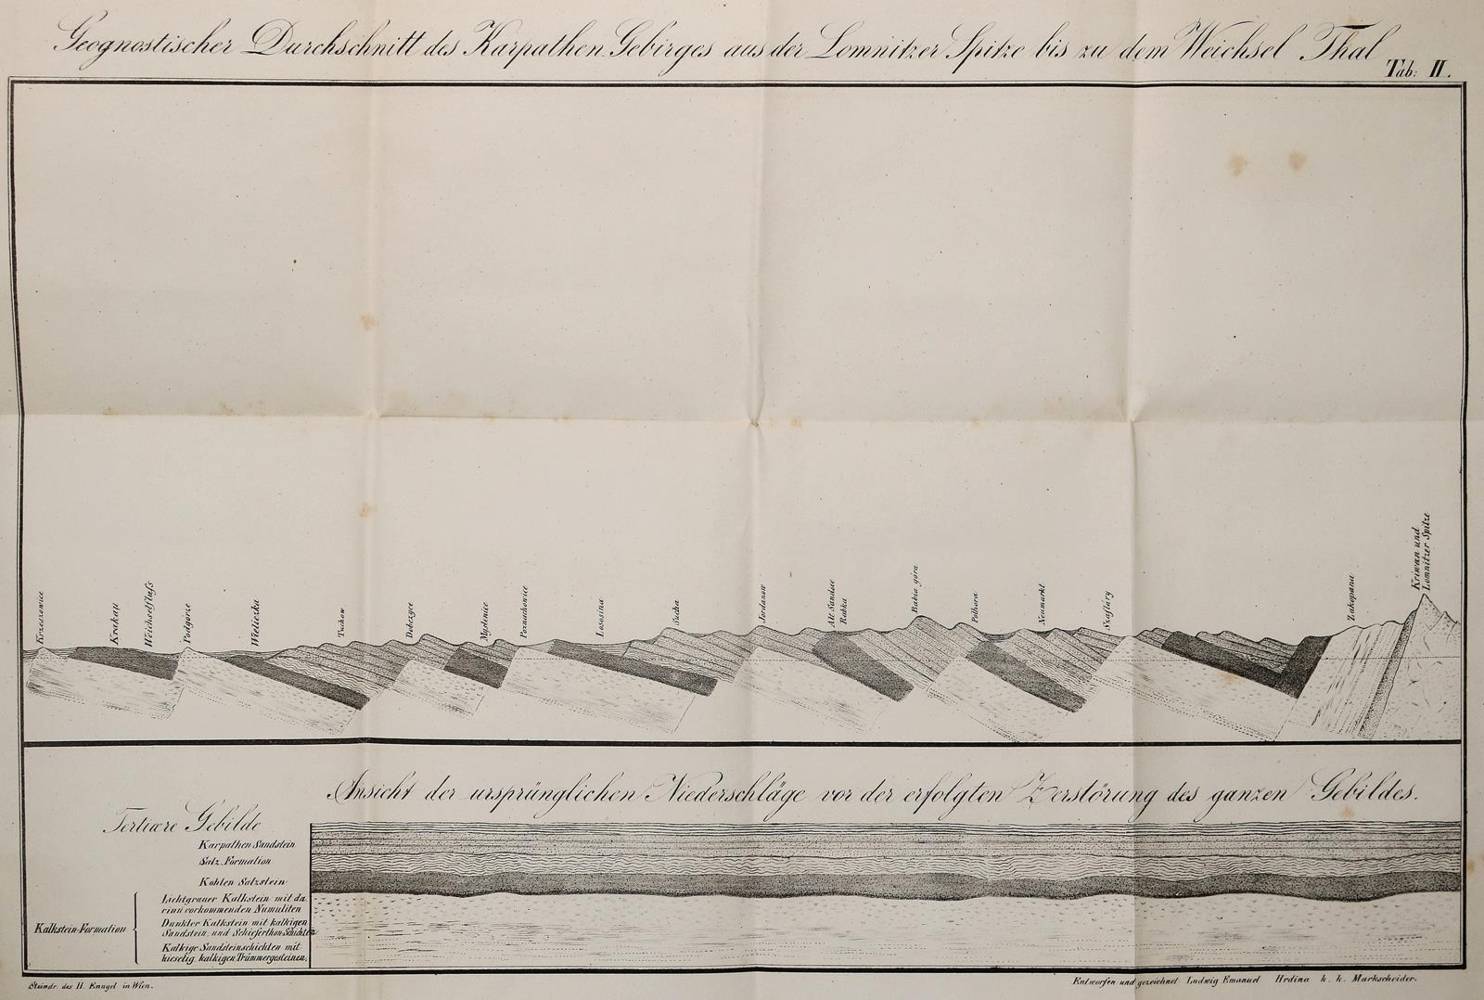 Geognostischer Durchschnitt des Karpathen Gebirges aus der Lomnitzer Spitze bis zu dem Weichsel Thal
Tab: II.
Krzeszowice
Krakau
Weichselfluſs
Podgorze
Wieliczka
Tuchow
Dobczyce
Myslenice
Poznachowice
Lososina
Sucha
Jordanow
Alt Sandec
Rabka
Babia góra
Polhora
Neumarkt
Szaflary
Zakopana
Kriwan und
Lomnitzer Spitze
Ansicht der ursprünglichen Niederschläge vor der erfolgten Zerstörung des ganzen Gebildes.
Tertiære Gebilde
Karpathen Sandstein
Salz-Formation
Kohlen Salzstein
Kalkstein-Formation
Lichtgrauer Kalkstein mit da
rinn vorkommenden Numuliten
Dunkler Kalkstein mit kalkigen
Sandstein und Schieferthon Schichten
Kalkige Sandsteinschichten mit
kieselig kalkigen Trümmergesteinen.
Steindr. des H. Engel in Wien.
Entworfen und gezeichnet Ludwig Emanuel Hrdina k. k. Markscheider.